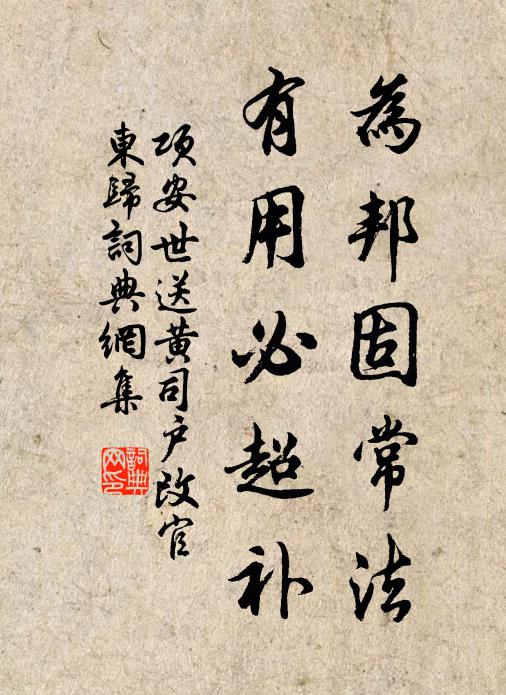 為邦固常法
有用必超补
项安世送黄司户改官
東歸詞典網集
詞典网印